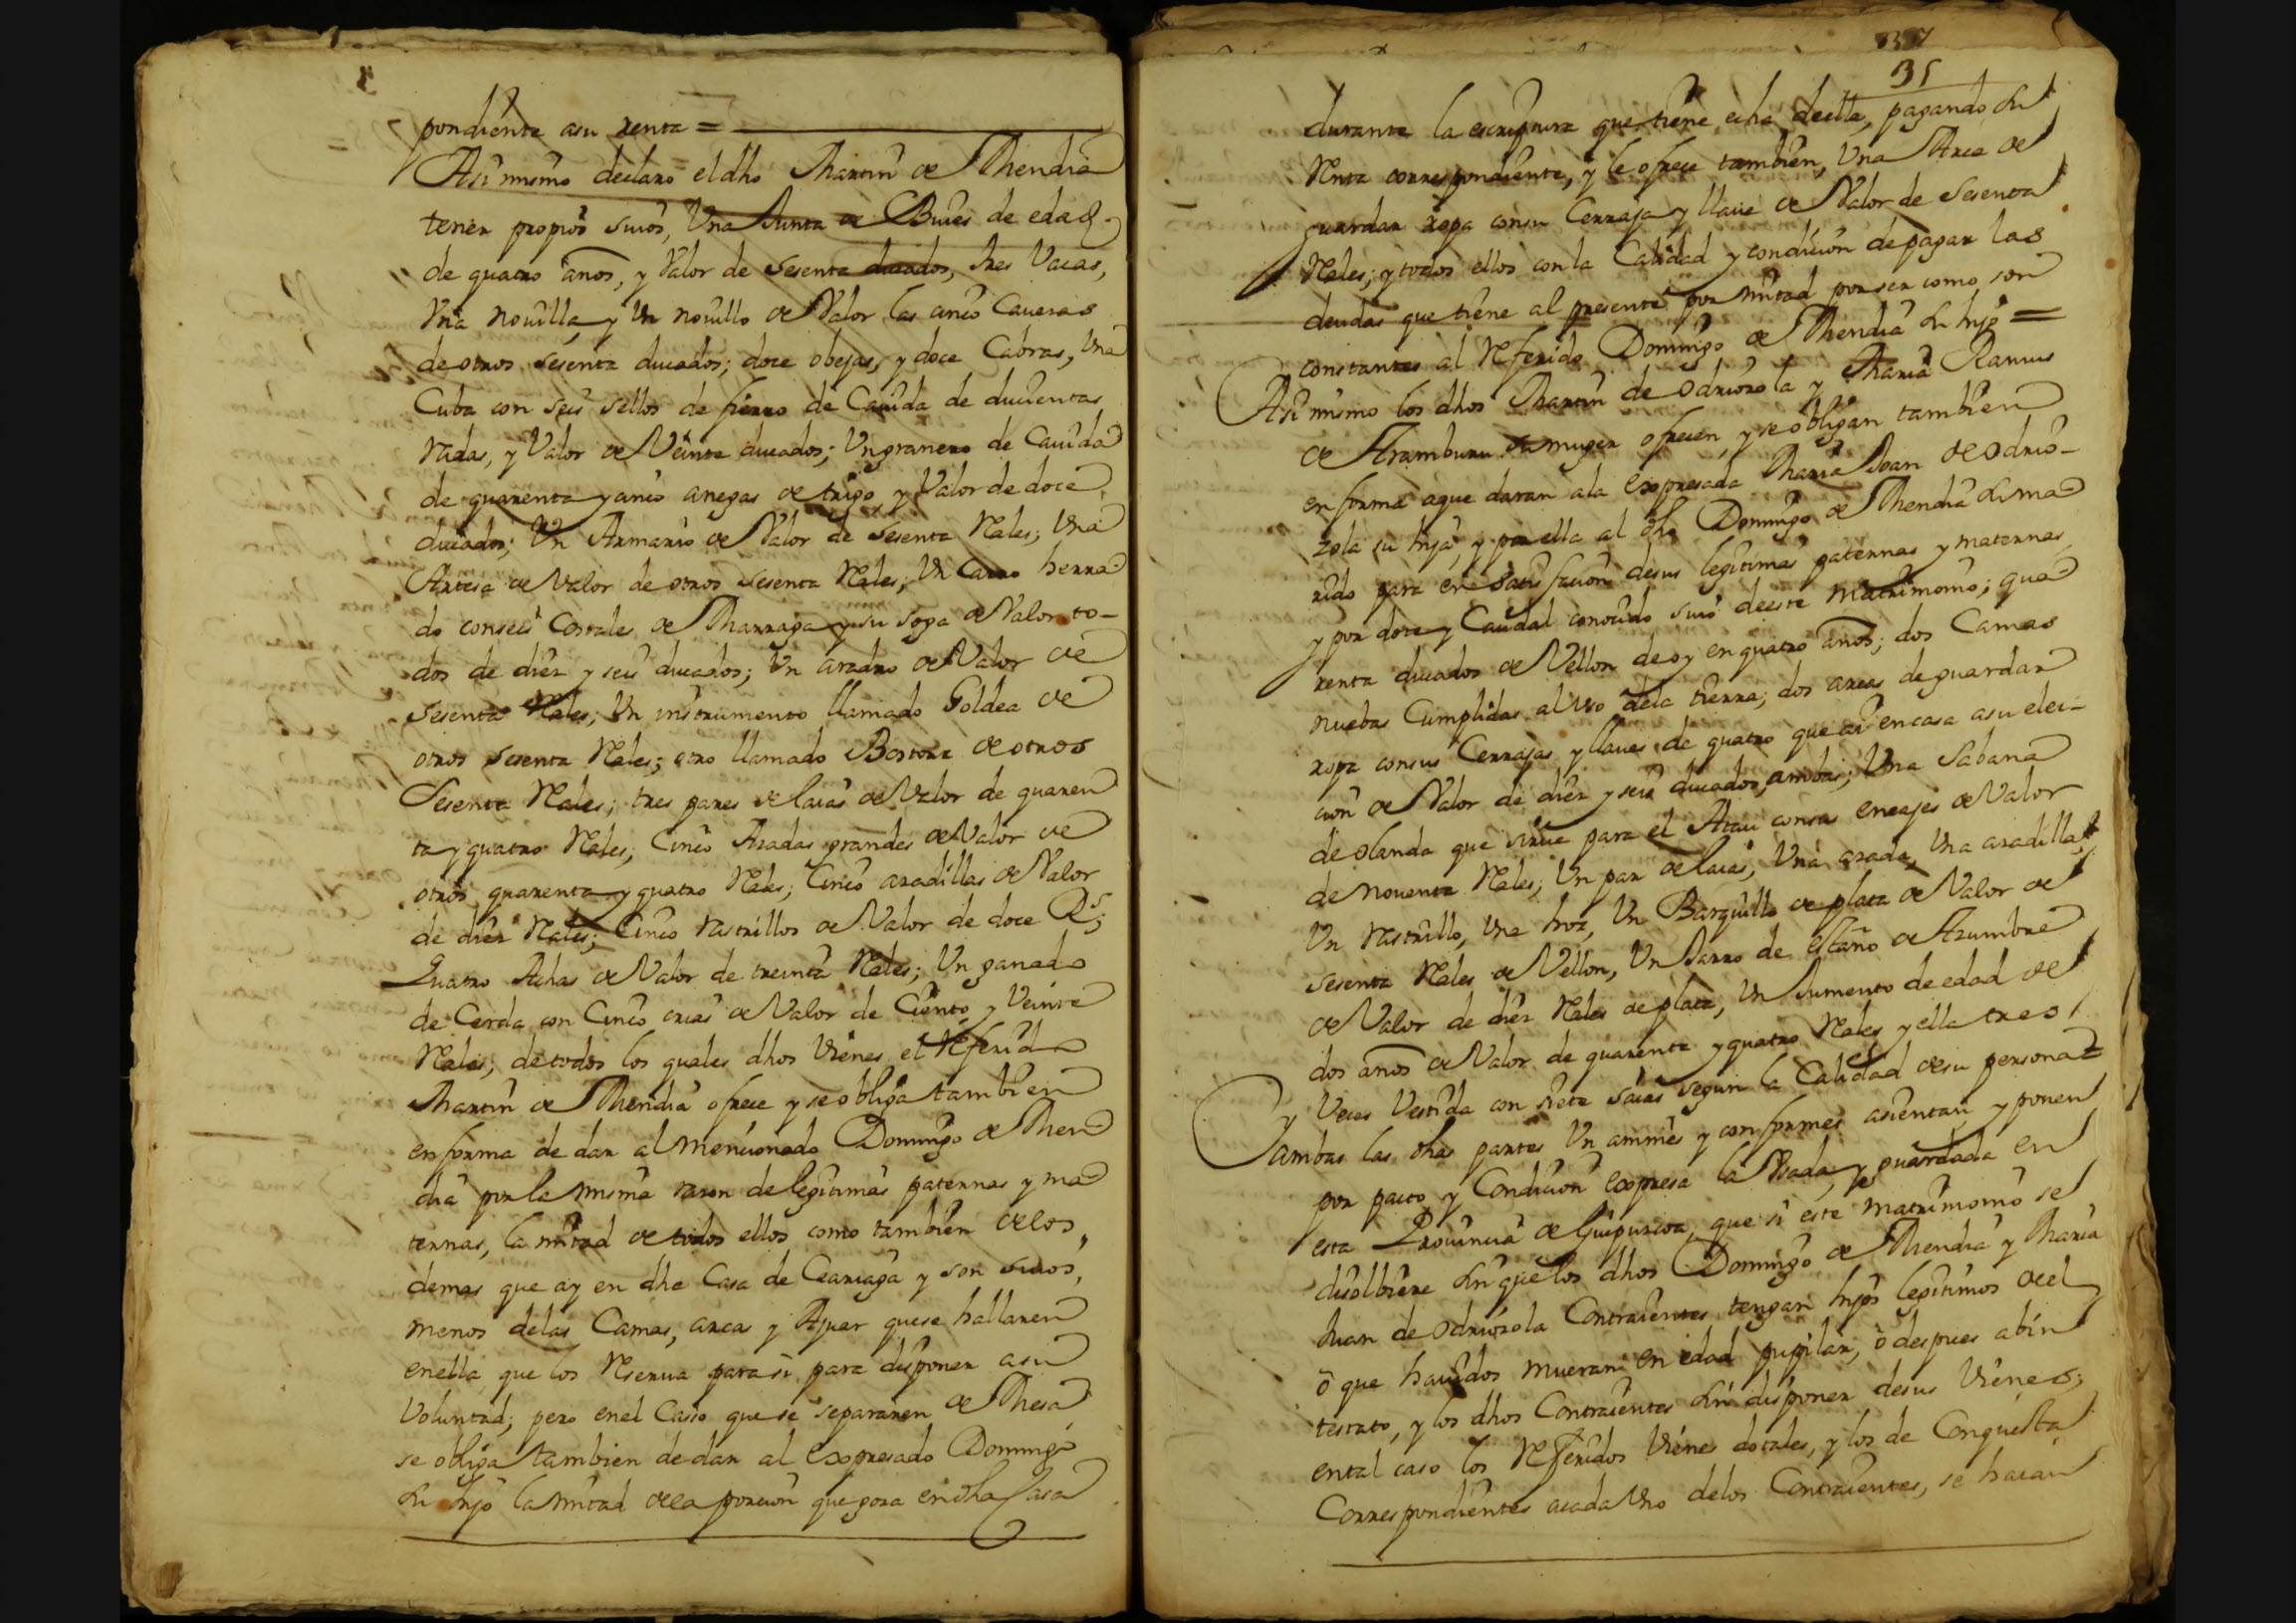 pondiente asu renta =
Asi mismo declaro el dho Martin de Mendia
tener propios suios, Una Iunta de Buies de edad
de quatro años, y Valor de Sesenta ducados, tres Vacas,
Vna Nouilla, y Un nouillo de Valor las cinco Caueras
de otros sesenta ducados; doce obejas, y doce Cabras, Una
Cuba con seis sellos de fierro de Cauida de ducientas
Nadas, y Valor de Veinte ducados; Un granero de Cauida
de quarenta y cinco anegas de trigo, y Valor de doce
ducados; Un Armario de Valor de sesenta Rales; Una
Artesa de Valor de otros sesenta Rales; Un Carro herra
do con seis Costales de Marraga y su soga de Valor to-
dos de diez y seis ducados; Un aradro de Valor de
Sesenta Rales; Un instrumento llamado Goldea de
otros sesenta Rales; otro llamado Bostorz de otros
Sesenta Rales; tres pares de laias de Valor de quaren
ta y quatro Rales; Cinco Azadas grandes de Valor de
otros quarenta y quatro Rales; Cinco azadillas de Valor
de diez Rales; Cinco rastrillos de Valor de doce Rs;
Quatro Achas de Valor de treinta Rales; Un ganado
de Cerda con Cinco crias de Valor de Ciento y Veinte
Rales; de todos los quales dhos Vienes el Referido
Martin de Mendia ofrece y se obliga tambien
en forma de dar al Mencionado Domingo de Men
dia por la misma razon de legitimas paternas y ma
ternas, la mitad de todos ellos como tambien de los
demas que ay en dha Casa de Ceariaga y son suios,
menos delas Camas, arca y Ajuar que se hallaren
enella que los Reserua para si para disponer asu
Voluntad; pero enel Casso que se separaren de Mesa
se obliga tambien de dar al expresado Domingo
su hijo la mitad dela porcion que goza en dha Casa
35
durante la escriptura que tiene echa deella, pagando su
Renta correspondiente, y le ofrece tambien, Una Arca de
guardar ropa consu Cerraja y llaue de Valor de Sesenta
Rales; y todos ellos con la Calidad y condicion de pagar las
deudas que tiene al presente por mitad por ser como son
constantes al Referido Domingo de Mendia su hijo =
Asi mismo los dhos Martin de Odriozola y Maria Ramus
de Aramburu su muger ofrecen, y se obligan tambien
en forma aque daran ala expresada Maria Joan de Odrio-
zola su hija, y por ella al dho Domingo de Mendia su ma
rido para en satisfacion desus legitimas paternas y maternas,
y por dote y Caudal conocido suio deeste matrimonio; qua
renta ducados de Vellon de oy en quatro años; dos Camas
nuebas Cumplidas al uso dela tierra; dos arcas de guardar
ropa consus Cerrajas y llaues de quatro que ai en casa asu elec-
cion de Valor de diez y seis ducados, ambas; Una Sabana
de olanda que sirue para el Atau consus encajes de Valor
de nouenta Rales; Un par de laias, Una azada, Una azadilla,
Un rastrillo, Una hoz, Un Barquillo de plata de Valor de
sesenta Rales de Vellon, Un Jarro de estaño de Azumbre
de Valor de diez Rales de plata, Un Jumento de edad de
dos años de Valor de quarenta y quatro Rales, y ella tres
Veces Vestida con siete saias segun la Calidad desu persona =
Y ambas las dhas partes Un animes y conformes asientan, y ponen
por pacto y Condicion expresa la Vsada, y guardada en
esta Prouincia de Guipuzcoa, que si este matrimonio se
disolbiere sin que los dhos Domingo de Mendia y Maria
Juan de Odriozola Contraientes tengan hijos legitimos del
ò que hauidos mueran en edad pupilar, ò despues abin
testato, y los dhos Contraientes sin disponer desus Vienes;
ental caso los Referidos Vienes dotales, y los de Conquista
Correspondientes acada Vno delos Contraientes, se haian